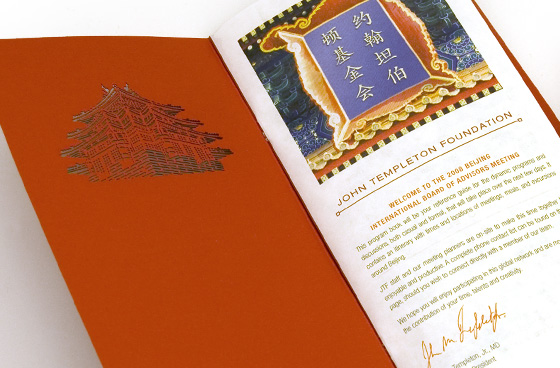 约翰坦伯
顿基金会
JOHN TEMPLETON FOUNDATION
WELCOME TO THE 2008 BEIJING
INTERNATIONAL BOARD OF ADVISORS MEETING
This program book will be your reference guide for the dynamic programs and
discussions, both casual and formal, that will take place over the next few days. It
contains an itinerary with times and locations of meetings, meals, and excursions
around Beijing.
JTF staff and our meeting planners are on-site to make this time together
enjoyable and productive. A complete phone contact list can be found on
page, should you wish to connect directly with a member of our team.
We hope you will enjoy participating in this global network and are
the contribution of your time, talents and creativity
John M. Templeton, Jr.
Templeton, Jr., MD
President